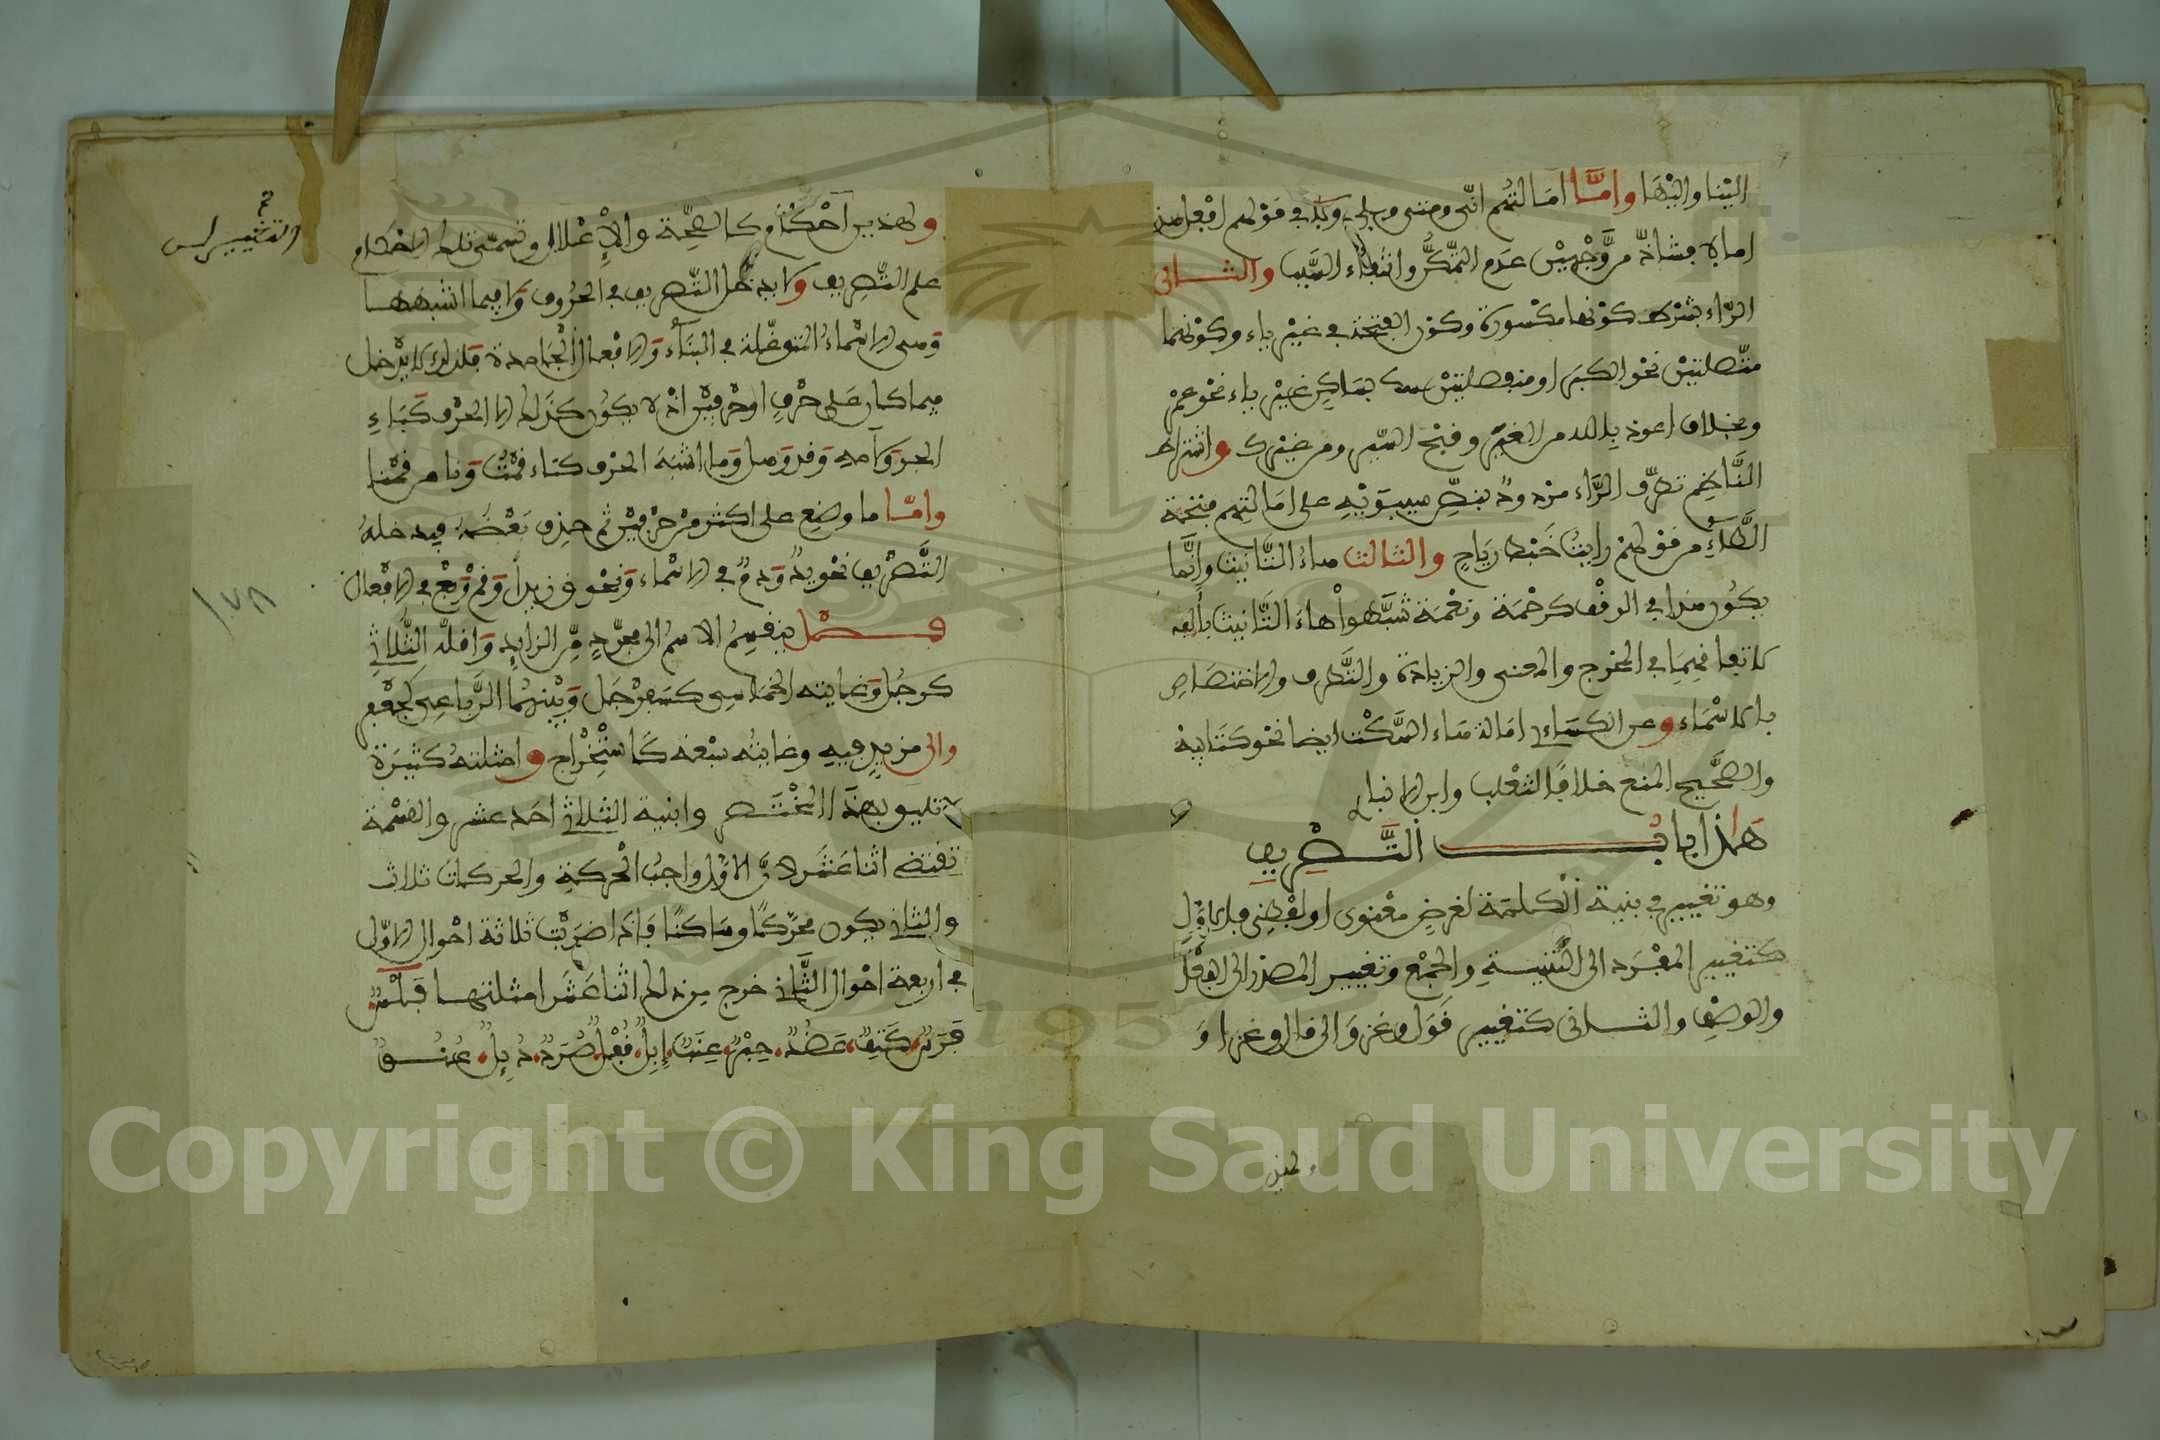 الينا واليها واما امالتهم انّى ومتى وبلى ولا في قولهم افعل هذا
اما لا فشاذّ من وَجْهين عدم التمكّن وانتفاء السبب والثانى
الراء بشرط كونها مكسورة وكون الفتحة في غير ياء وكونهما
متّصلتيْن نحو الكبر او منفصلتيْن بساكن غير ياء نحو عمرو
وبخلاف اعوذ بالله من الغير وقبح السير ومن غيرك واشتراط
النّاظم تطرّف الرّاء مردود بنصّ سيبويْه على امالتهم فتحة
الطّاء من قولهم رايت خَبط رياح والثالث هاء التّانيث وانّما
يكون هذا في الوقف كرحْمة ونعْمة شبّهوا هاء التّانيث بألفه
لاتفاقهما في المخرج والمعنى والزيادة والتّطرف والاختصاص
بالاسْماء وعن الكساءي امالة هاء السّكْت ايضا نحو كتابيهْ
والصّحيح المنع خلافًا لثعلب وابن الانباري
هذا باب التّصْريف
وهو تغيير في بنية الكلمة لغرض معْنوى او لفْظى فالاوّل
كتغيير المفْرد الى التّثنية والجمْع وتغيير المصدر الى الفعْل
والوصْف والثانى كتغيير قَوَل وغزَو الى قال وغزا وَ
ولهذين
ولهذين احْكام كالصّحّة والإعْلال وتسمّى تلك الاحْكام
علم التّصْريف ولا يدخل التّصْريف في الحرُوف ولا فيما اشْبهها
وهى الاسْماءُ المتوغّلة في البنَاء والافْعال الجامدة فلذلك لا يدْخل
فيما كان على حرْف او حرْفيْن اذ لا يكون كذلك الا الحرْف كباءِ
الجر ولامه وقد وهل وما اشْبه الحرْف كتاء قمْتُ ونا من قمْنا
وامّا ما وضع على اكثر من حرْفيْن ثم حذف بَعْضه فيدخله
التّصْريف نحو يدٌ ودمٌ في الاسْماء ونحو ق زيداً وقمْ وبعْ في الافْعال
فصْل ينقسم الاسمُ الى مجرّد من الزايد واقلّه الثّلاثي
كرجُل وغايته الخماسي كسفرْجل وبيْنهما الرّباعي كجعْفر
والى مزيد فيه وغايته سبْعه كاسْتخْراج وامثلته كثيرة
لا تليق بهذا المخْتصر وابنية الثلاثي احد عشر والقسْمة
تقتضي اثنا عشر لانّ الاوّل واجب الحركة والحركات ثلاث
والثاني يكون محرّكًا وساكنًا فاذا ضربْت ثلاثة احْوال الاوّل
في اربعة احْوال الثّاني خرج من ذلك اثنا عشر امثلتها فَلْسٌ
فَرَسٌ كَتِفٌ عَضُدٌ حِبْرٌ عِنَبٌ إِبِلٌ قُفْلٌ صُرَدٌ دُئِلٌ عُنُقٌ
١٧٨
Copyright © King Saud University
1957